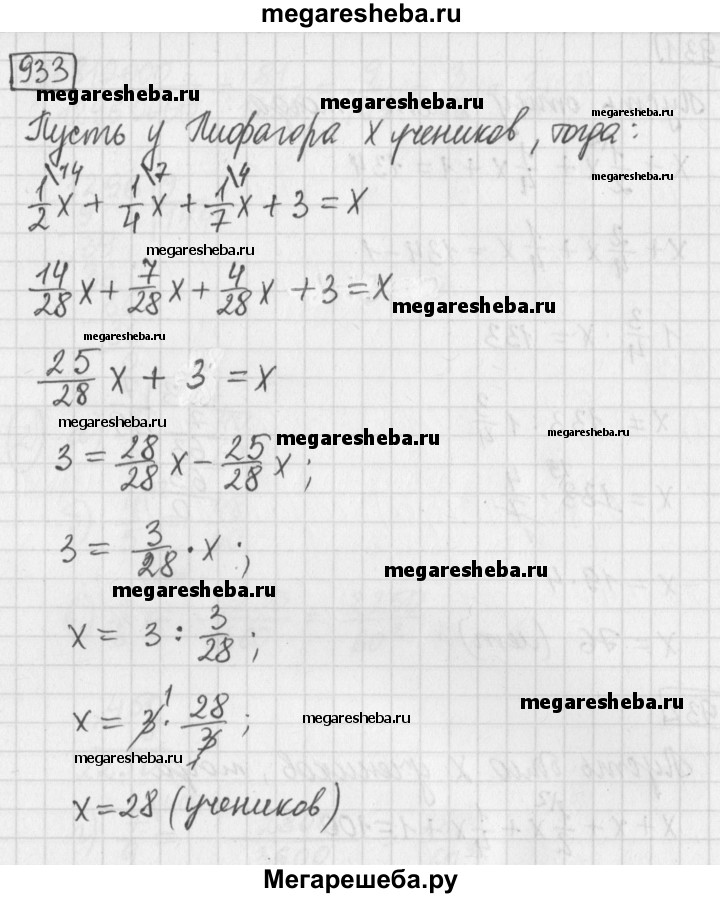 megaresheba.ru
933
megaresheba.ru megaresheba.ru megaresheba.ru
Пусть у Пифагора x учеников, тогда:
1/2\14 x + 1/4\7 x + 1/7\4 x + 3 = x
megaresheba.ru
megaresheba.ru
14/28 x + 7/28 x + 4/28 x + 3 = x
megaresheba.ru
megaresheba.ru
25/28 x + 3 = x
megaresheba.ru megaresheba.ru megaresheba.ru
3 = 28/28 x - 25/28 x ;
3 = 3/28 · x ;
megaresheba.ru
megaresheba.ru
x = 3 : 3/28 ;
megaresheba.ru
x = 3 1 · 28/3 1 ;
megaresheba.ru
megaresheba.ru
x = 28 (учеников)
Мегарешеба.ру